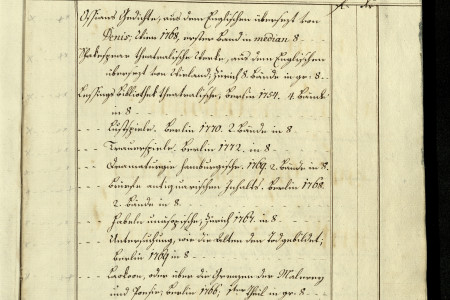 Ossians Gedichte, aus dem Englischen übersezt von
Denis, Wien 1768, erster Band in median 8
Shakespear theatralische Werke, aus dem Englischen
übersezt von Wieland, Zürich 8. Bände in gr: 8
Lessings Bibliothek theatralische, Berlin 1754. 4. Bände
in 8
Lustspiele. Berlin 1770. 2 Bände in 8
Trauerspiele. Berlin 1772. in 8
Dramaturgie hamburgische. 1769. 2 Bände in 8.
Briefe antiquarischen Inhalts. Berlin 1768.
2. Bände in 8
Fabeln unäsopische, Zürich 1767. in 8
Untersuchung, wie die Alten den Tod gebildet;
Berlin 1769 in 8
Laokoon, oder über die Grenzen der Malerey
und Poesie; Berlin 1766; 1ster Theil in gr: 8